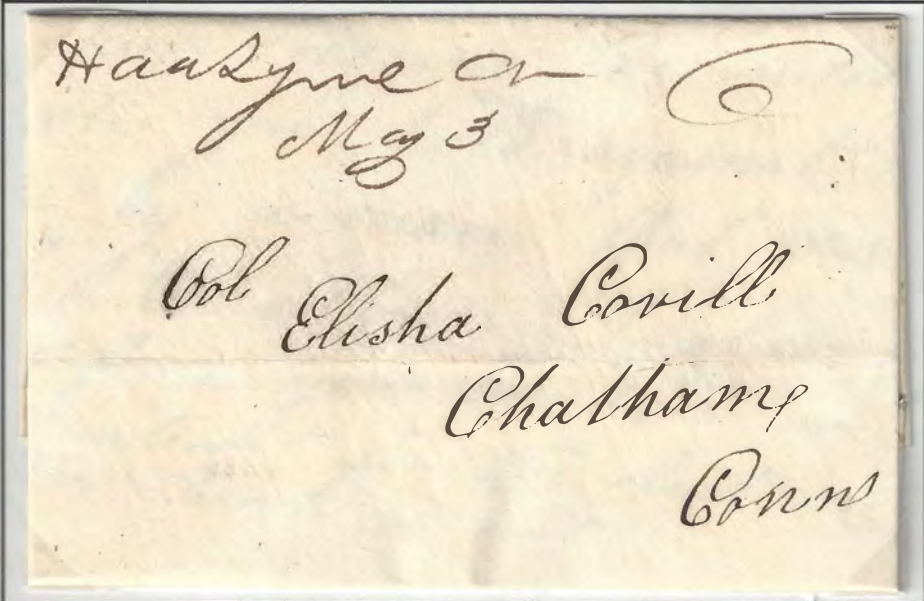 HadLyme Ct 6
May 3
Col Elisha Covill
Chatham
Conn